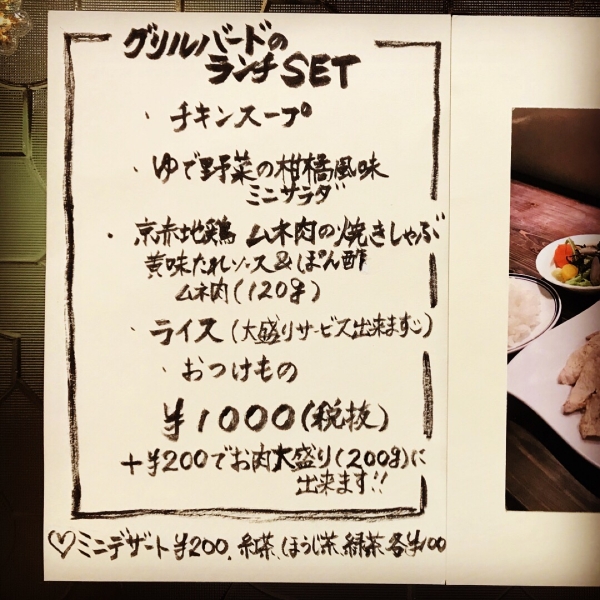 グリルバードの
ランチSET
・チキンスープ
・ゆで野菜の柑橘風味
ミニサラダ
・京赤地鶏 ムネ肉の焼きしゃぶ
黄味たれソース&ぽん酢
ムネ肉(120g)
・ライス(大盛りサービス出来ます☺)
・おつけもの
¥1000(税抜)
+¥200でお肉大盛り(200g)に
出来ます!!
♡ミニデザート¥200、紅茶、ほうじ茶、緑茶、各¥100